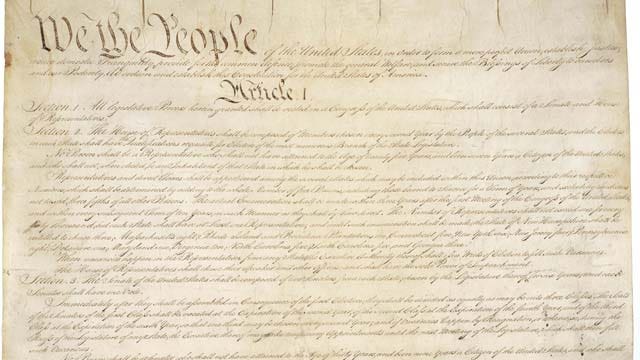 We the People of the United States, in Order to form a more perfect Union, establish Justice,
insure domestic Tranquility, provide for the common defence, promote the general Welfare, and secure the Blessings of Liberty to ourselves
and our Posterity, do ordain and establish this Constitution for the United States of America.
Article. I.
Section. 1. All legislative Powers herein granted shall be vested in a Congress of the United States, which shall consist of a Senate and House
of Representatives.
Section. 2. The House of Representatives shall be composed of Members chosen every second Year by the People of the several States, and the Electors
in each State shall have Qualifications requisite for Electors of the most numerous Branch of the State Legislature.
No Person shall be a Representative who shall not have attained to the Age of twenty five Years, and been seven Years a Citizen of the United States,
and who shall not, when elected, be an Inhabitant of that State in which he shall be chosen.
Representatives and direct Taxes shall be apportioned among the several States which may be included within this Union, according to their respective
Numbers, which shall be determined by adding to the whole Number of free Persons, including those bound to Service for a Term of Years, and excluding Indians
not taxed, three fifths of all other Persons. The actual Enumeration shall be made within three Years after the first Meeting of the Congress of the United States,
and within every subsequent Term of ten Years, in such Manner as they shall by Law direct. The Number of Representatives shall not exceed one for
every thirty Thousand, but each State shall have at Least one Representative; and until such enumeration shall be made, the State of New Hampshire shall be
entitled to chuse three,
eight, Delaware one, Maryland six, Virginia ten, North Carolina five, South Carolina five, and Georgia three.
When vacancies happen in the Representation from any State, the Executive Authority thereof shall issue Writs of Election to fill such Vacancies.
The House of Representatives shall chuse their Speaker and other Officers; and shall have the sole Power of Impeachment.
Section. 3. The Senate of the United States shall be composed of two Senators from each State, chosen by the Legislature thereof, for six Years; and each
Senator shall have one Vote.
Immediately after they shall be assembled in Consequence of the first Election, they shall be divided as equally as may be into three Classes. The Seats
of the Senators of the first Class shall be vacated at the Expiration of the second Year, of the second Class at the Expiration of the fourth Year, and of the third
Class at the Expiration of the sixth Year, so that one third may be chosen every second Year; and if Vacancies happen by Resignation, or otherwise, during the
Recess of the Legislature of any State, the Executive thereof may make temporary Appointments until the next Meeting of the Legislature, which shall then fill
such Vacancies.
No Person shall be a Senator who shall not have attained to the Age of thirty Years, and been nine Years a Citizen of the United States, and who shall